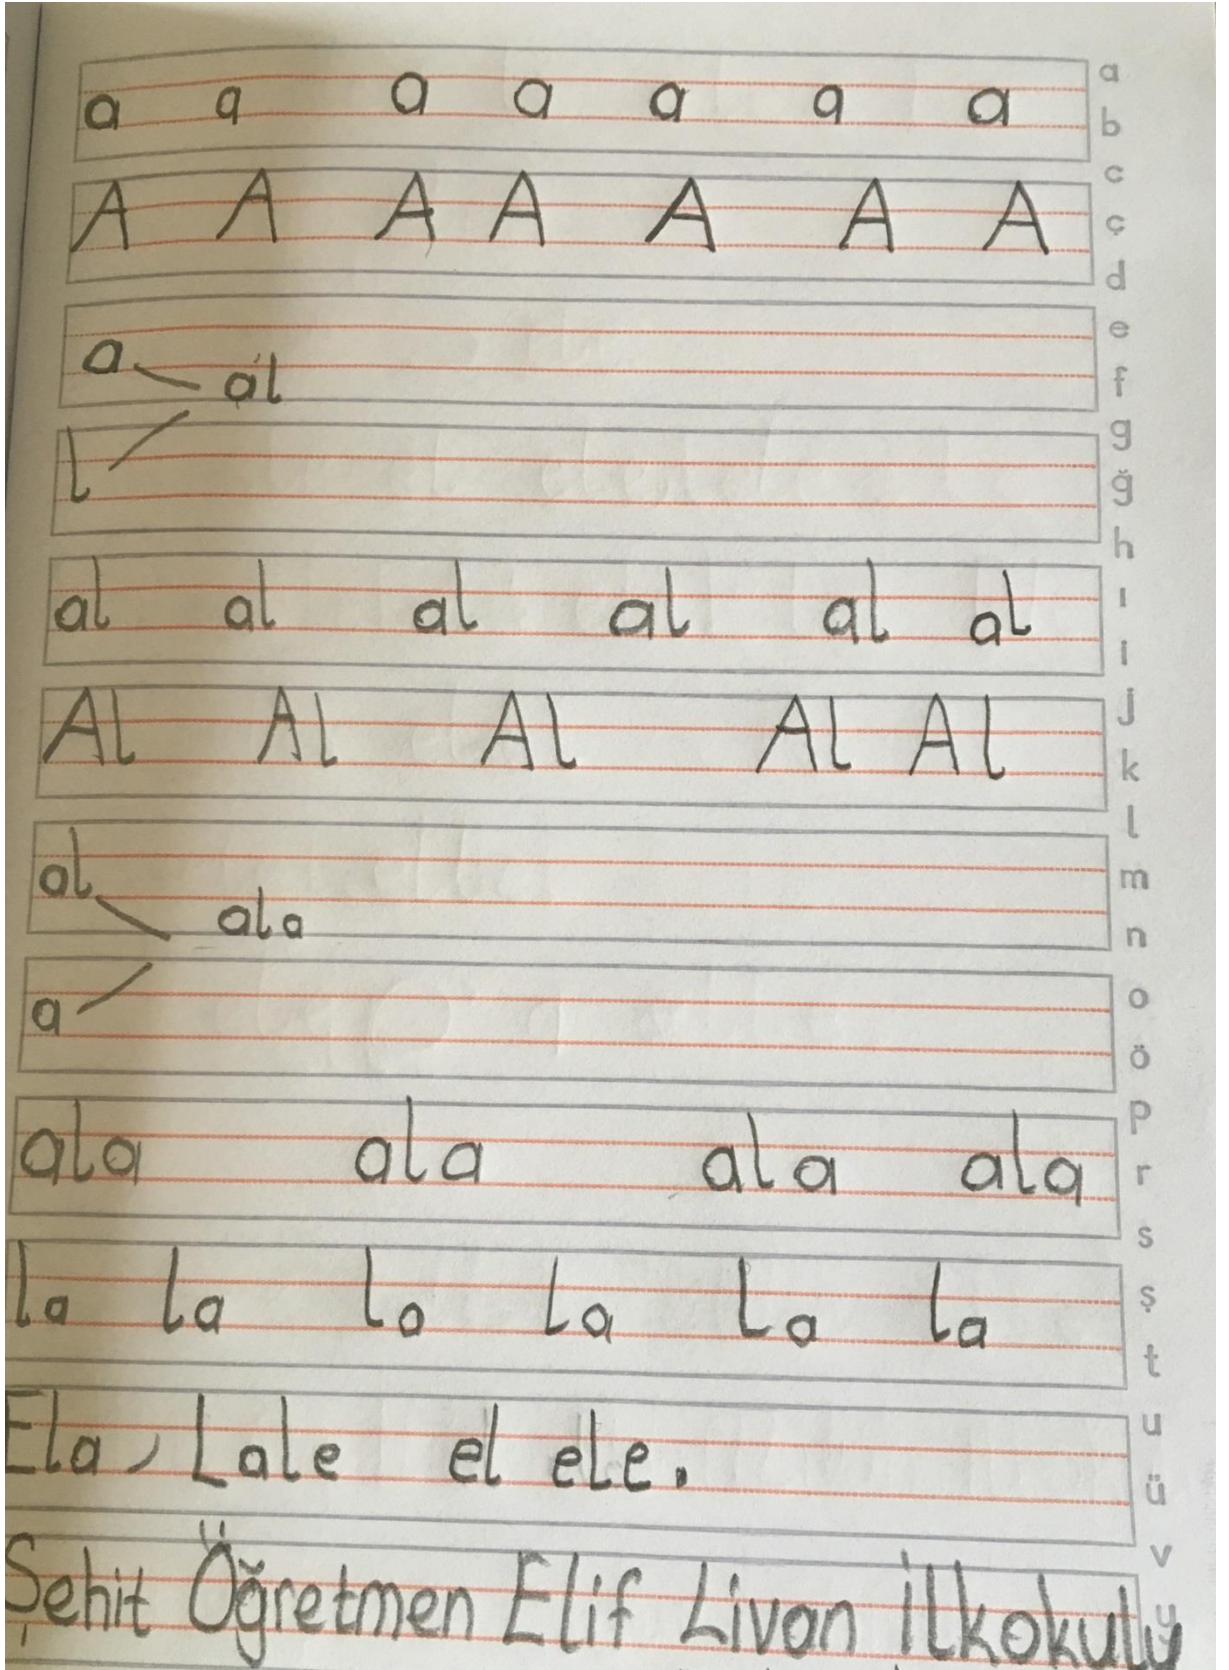 a a a a a a a
A A A A A A A
a al
l
al al al al al al
Al Al Al Al Al
al ala
a
ala ala ala ala
la la la la la la
Ela, Lale el ele.
Şehit Öğretmen Elif Livan İlkokulu
a
b
c
ç
d
e
f
g
ğ
h
ı
i
j
k
l
m
n
o
ö
p
r
s
ş
t
u
ü
v
y